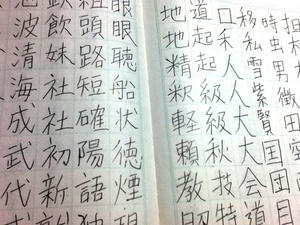 担
時虫男田
移私雪紫賢国団目
口禾人人大大会道
道起起級級秋技特
地地精釈軽頼教
眼眼聴船状徳煙
組頭路短確陽語独
飲妹社社初新
池波清海成武代